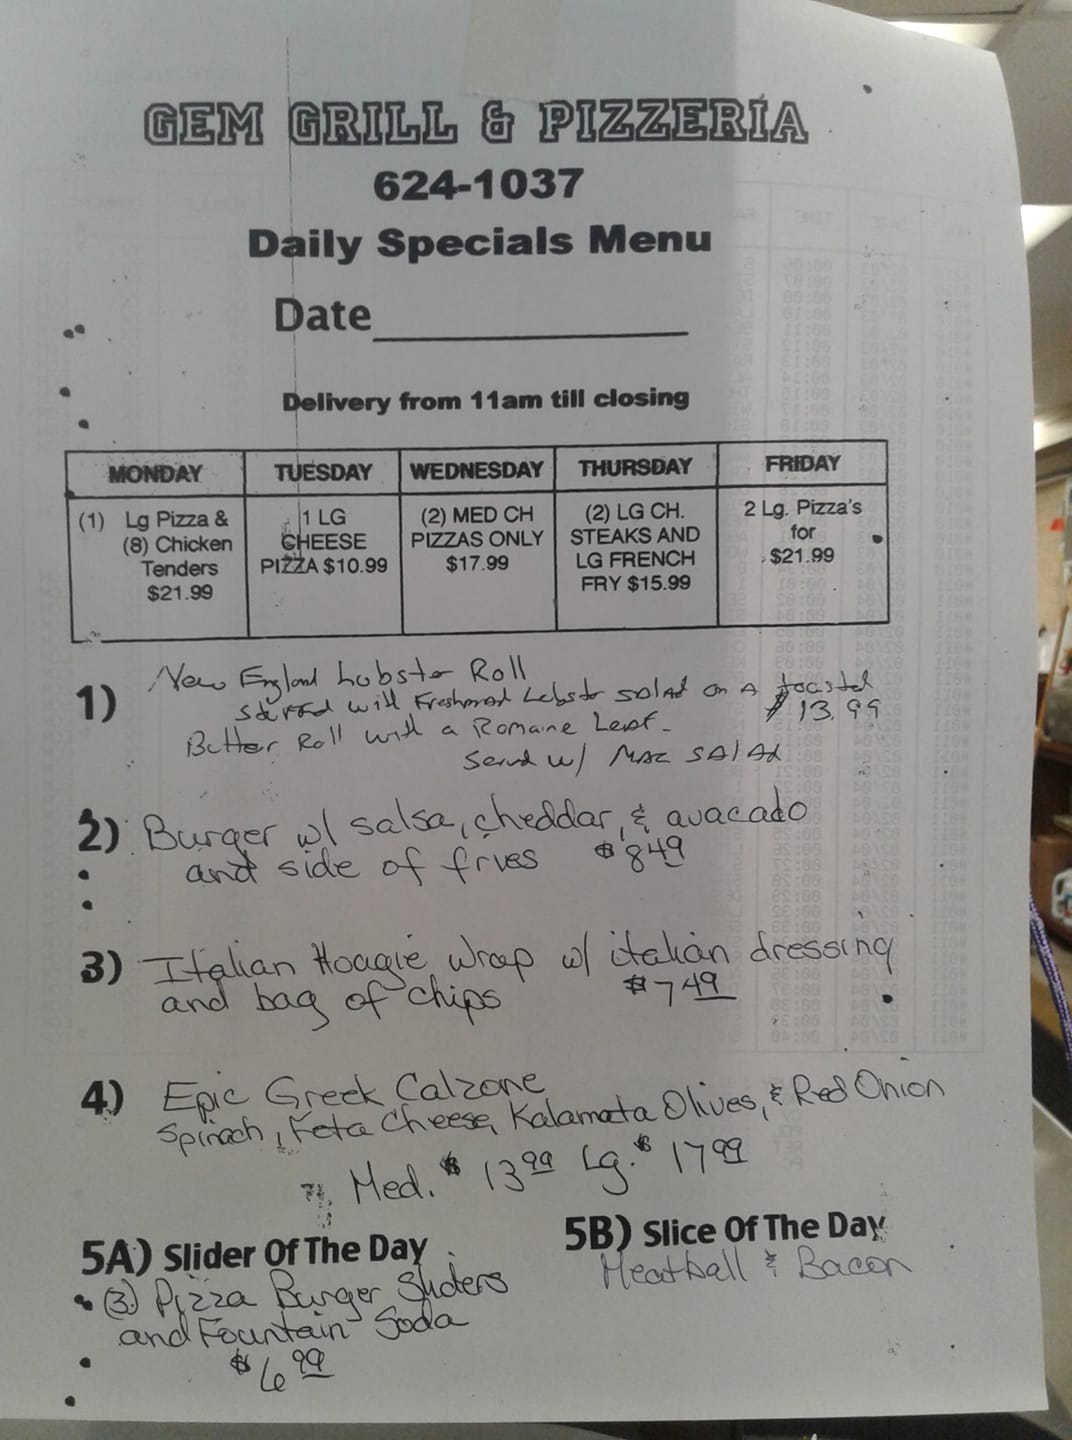 GEM GRILL & PIZZERIA
624-1037
Daily Specials Menu
Date
Delivery from 11am till closing
MONDAY TUESDAY WEDNESDAY THURSDAY FRIDAY
(1) Lg Pizza & (8) Chicken Tenders $21.99
1 LG CHEESE PIZZA $10.99
(2) MED CH PIZZAS ONLY $17.99
(2) LG CH. STEAKS AND LG FRENCH FRY $15.99
2 Lg. Pizza's for $21.99
1) New England Lobster Roll
with Lobster Salad on A toasted
$13.99
Butter Roll with a Romaine Leaf.
Served w/ Mac SALAd
2) Burger w/ salsa, cheddar, & avacado
and side of fries $8.49
3) Italian Hoagie Wrap w/ italian dressing
and bag of chips $7.49
4) Epic Greek Calzone
Spinach, Feta Cheese, Kalamata Olives, & Red Onion
Med. $13.99 Lg. $17.99
5A) Slider Of The Day
(3) Pizza Burger Sliders
and Fountain Soda
$6.99
5B) Slice Of The Day
Meatball & Bacon